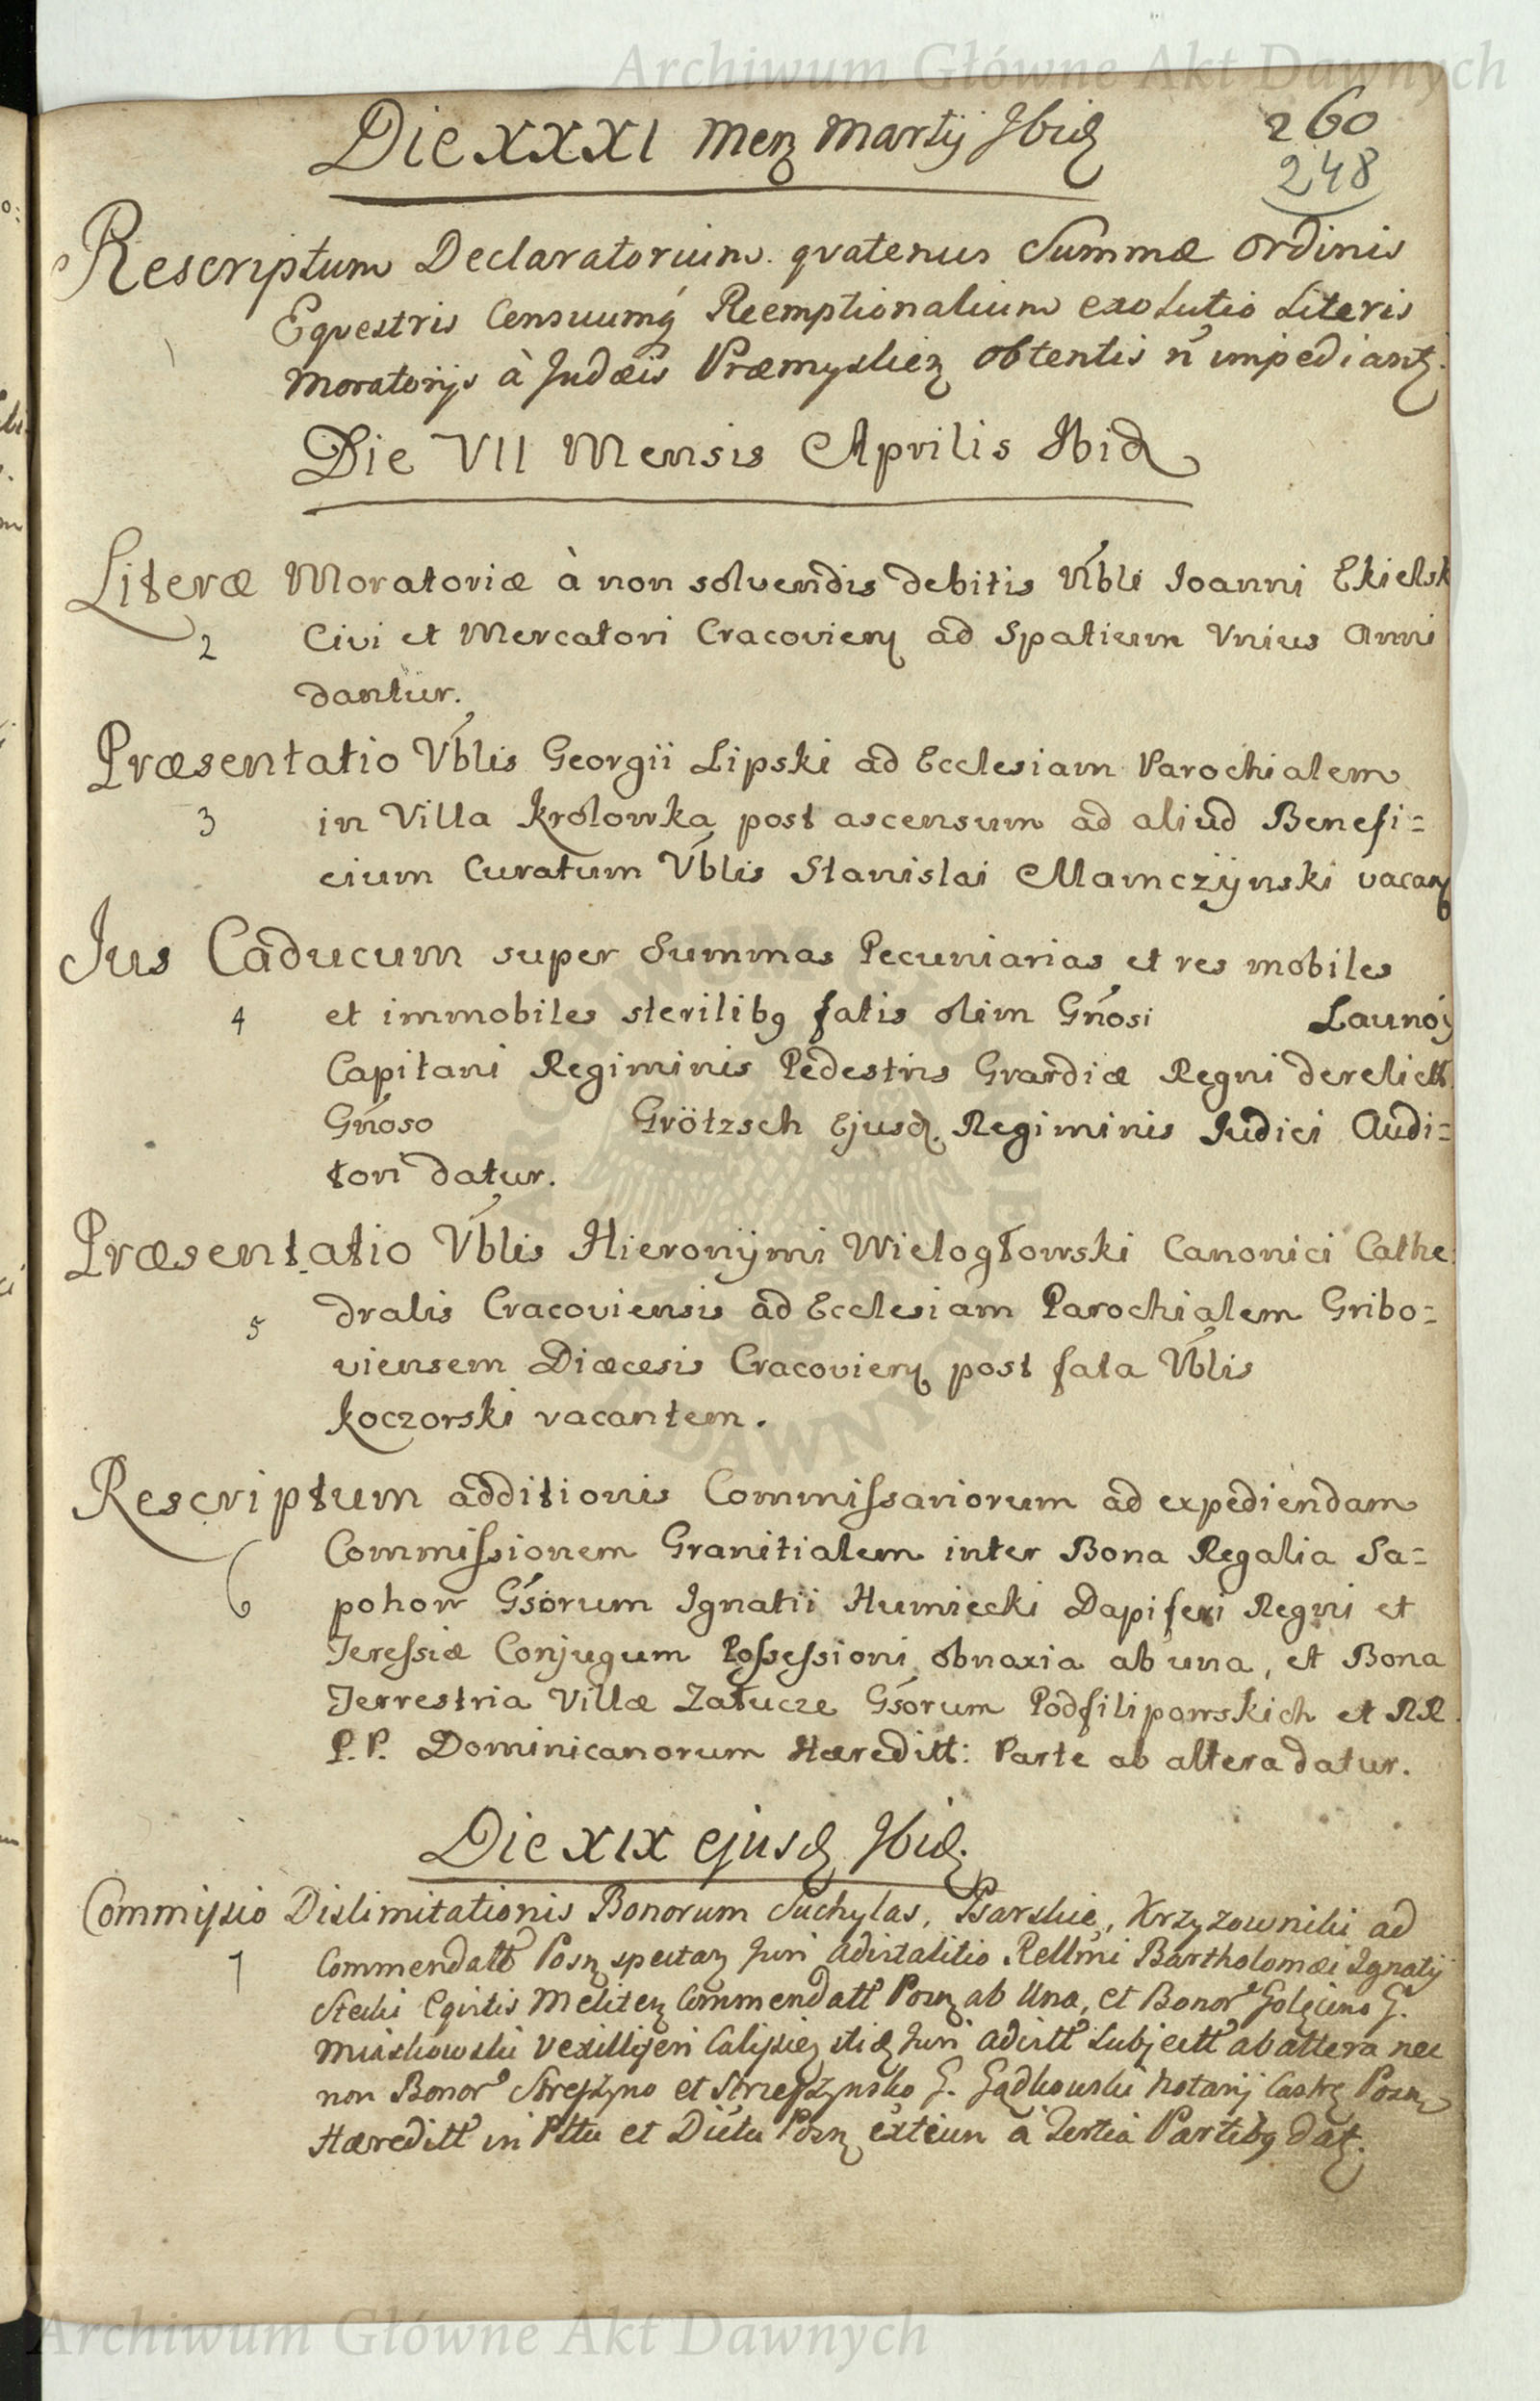 Archiwum Główne Akt Dawnych
260
248
Die XXXI Menz Martij Ibid
Rescriptum Declaratorium quatenus Summæ Ordinis
Equestris Censuumq Reemptionalium exolutio Literis
1
Moratorijs à Judæis Præmysliez obtentis n impediant.
Die VII Mensis Aprilis Ibid
Literæ Moratoriæ à non solvendis debitis Vbli Joanni Ekielsk
2 Civi et Mercatori Cracovien ad Spatium Vnius Anni
dantur.
Præsentatio Vblis Georgii Lipski ad Ecclesiam Parochialem
3 in Villa Krolowka post ascensum ad aliud Benefi=
cium Curatum Vblis Stanislai Mamczÿnski vacan
Jus Caducum super Summas Pecuniarias et res mobiles
4 et immobiles sterilibq fatis olim Gnosi Launoÿ
Capitani Regiminis Pedestris Gvardiæ Regni derelictt.
Gnoso Grötzsch Ejusd. Regiminis Judici Audi=
tori datur.
Præsentatio Vblis Hieronÿmi Wielogłowski Canonici Cathe
5 dralis Cracoviensis ad Ecclesiam Parochialem Gribo=
viensem Diæcesis Cracovien post fata Vblis
Koczorski vacantem.
Rescriptum additionis Commissariorum ad expediendam
Commissionem Granitialem inter Bona Regalia Sa=
6 pohow Gsorum Ignatii Humiecki Dapiferi Regni et
Teressiæ Conjugum Possessioni obnoxia ab una, et Bona
Terrestria Villæ Załucze Gsorum Podfilipowskich et RR.
P.P. Dominicanorum Hæreditt: Parte ab altera datur.
Die XIX ejusd Ibid.
Commissio Dislimitationis Bonorum Suchylas, Psarskie, Krzyzowniki ad
7 Commendatt Posn spectan Juri Advitalitio Rellmi Bartholomæi Ignatij
Stecki Eqvitis Meliten Commendatt Posn ab Una, et Bonor Golęcino G.
Miaskowski Vexilligeri Calisien Juri Advitt Subjectt ab altera nec
non Bonor Streszyno et Strzeszynsko G. Gądkowski Notarij Castr Posn
Hæreditt in Pttu et Posn à Tertia Partibq dat.
Archiwum Główne Akt Dawnych